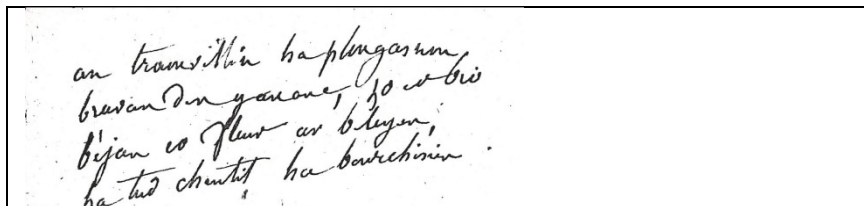 an tramvillin ha plougasnou
bravan den garane, zo er bro
bejan eo fleur ar bleyen,
ha tud chentil ha bourchisien.